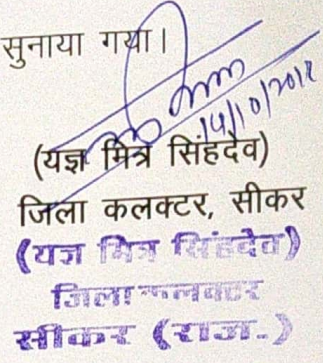 सुनाया गया।
(यज्ञ मित्र सिंहदेव)
जिला कलक्टर, सीकर
(यज्ञ मित्र सिंहदेव)
जिला कलक्टर
सीकर (राज.)